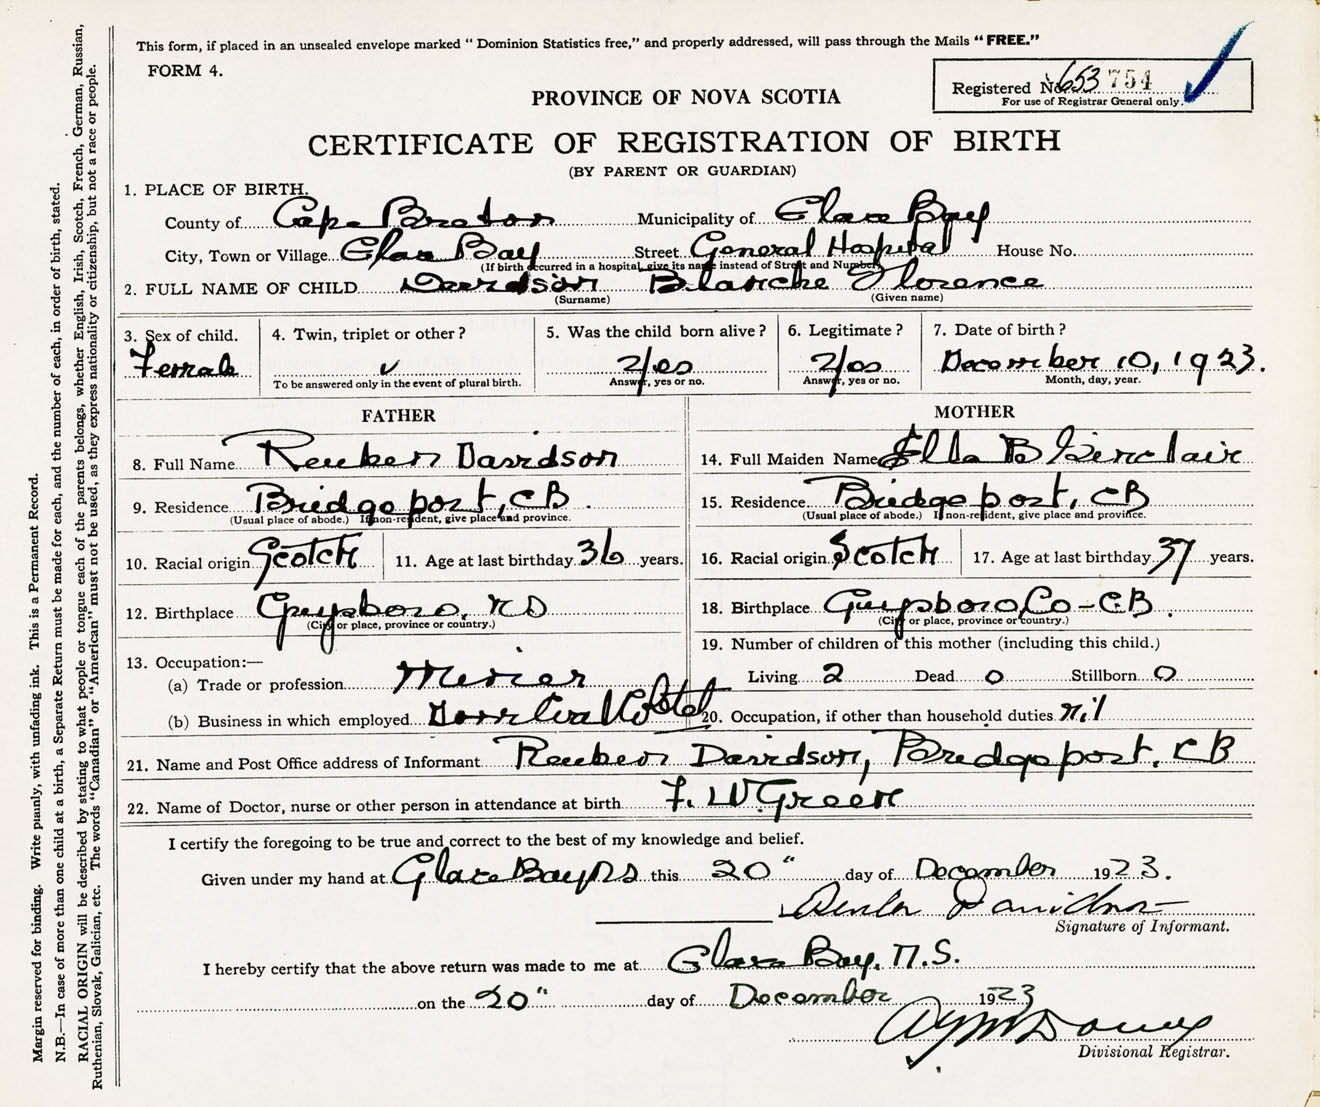 This form, if placed in an unsealed envelope marked " Dominion Statistics free," and properly addressed, will pass through the Mails " FREE."
FORM 4.
Registered No. 653 754
For use of Registrar General only.
PROVINCE OF NOVA SCOTIA
CERTIFICATE OF REGISTRATION OF BIRTH
(BY PARENT OR GUARDIAN)
1. PLACE OF BIRTH.
County of Cape Breton Municipality of Glace Bay
City, Town or Village Glace Bay Street General Hospital House No.
(If birth occurred in a hospital, give its name instead of Street and Number)
2. FULL NAME OF CHILD Davidson Blanche Florence
(Surname) (Given name)
3. Sex of child. 4. Twin, triplet or other ? 5. Was the child born alive ? 6. Legitimate ? 7. Date of birth ?
Female Yes Yes December 10, 1923.
To be answered only in the event of plural birth. Answer, yes or no. Answer, yes or no. Month, day, year.
FATHER MOTHER
8. Full Name Reuben Davidson 14. Full Maiden Name Ella B Sinclair
9. Residence Bridgeport, CB. 15. Residence Bridgeport, CB
(Usual place of abode.) If non-resident, give place and province. (Usual place of abode.) If non-resident, give place and province.
10. Racial origin Scotch 11. Age at last birthday 36 years. 16. Racial origin Scotch 17. Age at last birthday 37 years.
12. Birthplace Guysboro, NS 18. Birthplace Guysboro Co - CB.
(City or place, province or country.) (City or place, province or country.)
19. Number of children of this mother (including this child.)
13. Occupation:—
(a) Trade or profession Miner Living 2 Dead 0 Stillborn 0
(b) Business in which employed Dom Coal Co 20. Occupation, if other than household duties nil
21. Name and Post Office address of Informant Reuben Davidson, Bridgeport, CB
22. Name of Doctor, nurse or other person in attendance at birth F. W. Green
I certify the foregoing to be true and correct to the best of my knowledge and belief.
Given under my hand at Glace Bay NS this 20" day of December 1923.
Reuben Davidson
Signature of Informant.
I hereby certify that the above return was made to me at Glace Bay, N.S.
on the 20" day of December 1923
Divisional Registrar.
Margin reserved for binding. Write plainly, with unfading ink. This is a Permanent Record.
N.B.—In case of more than one child at a birth, a Separate Return must be made for each, and the number of each, in order of birth, stated.
RACIAL ORIGIN will be described by stating to what people or tongue each of the parents belongs, whether English, Irish, Scotch, French, German, Russian,
Ruthenian, Slovak, Galician, etc. The words "Canadian" or "American" must not be used, as they express nationality or citizenship, but not a race or people.